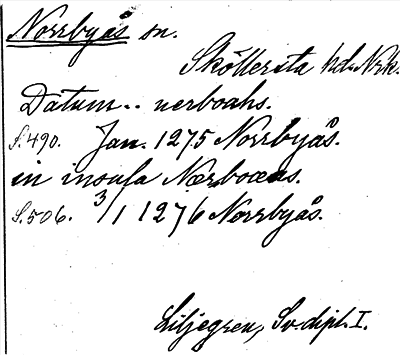 Norrbyås sn.
Sköllersta hd. Nrk.
Datum .. nerboahs.
S. 490. Jan. 1275 Norrbyås.
in insula Nærboæs.
S. 506. 3/1 1276 Norrbyås.
Liljegren, Sv. dipl. I.